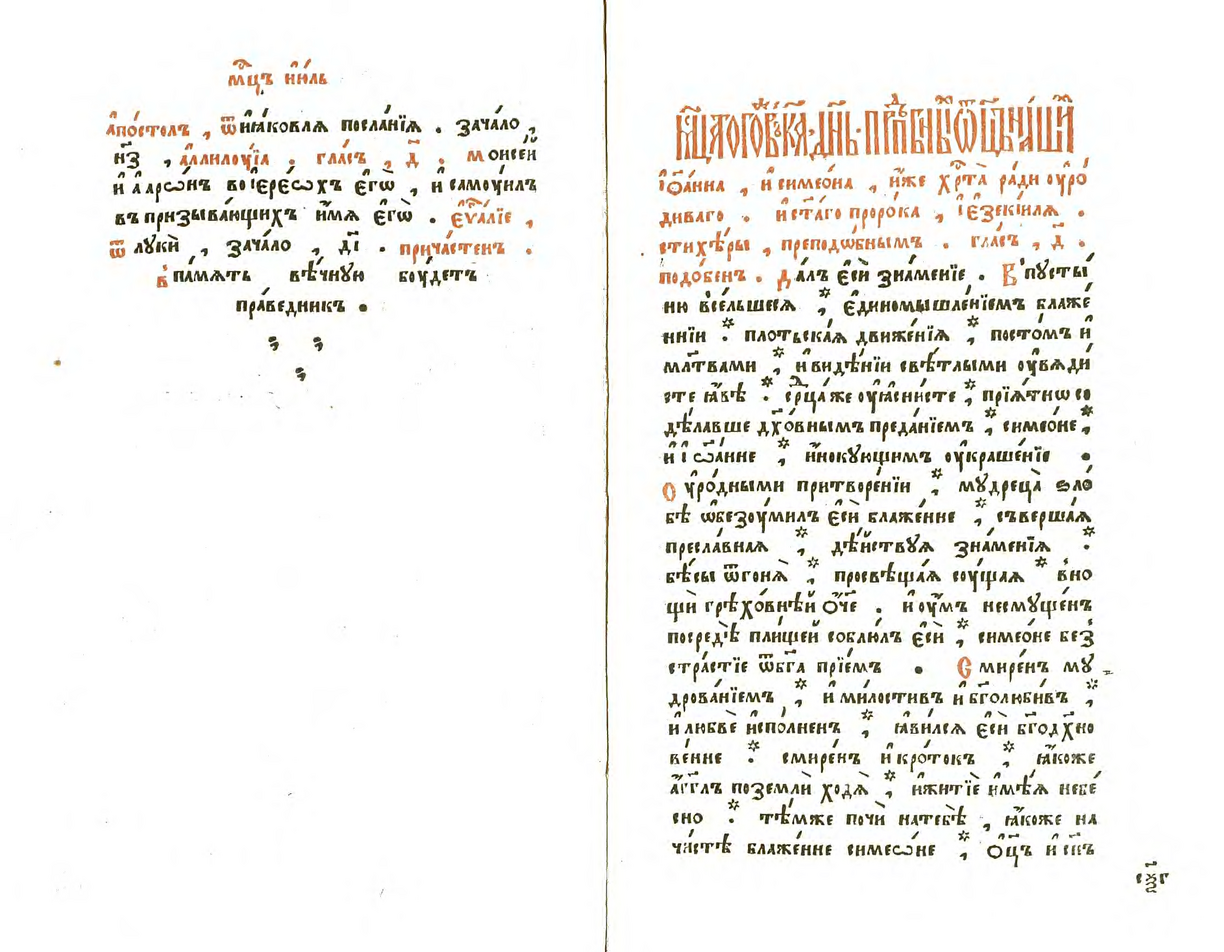 мⷭ҇цъ і҆ю́ль
а҆по́столъ , ѿи҆ꙗ́ковлѧ посла́нїѧ . зача́ло ,
н҃з , а҆ллилꙋ́їа . гла́съ , д҃ . моисе́й
и҆ а҆арѡ́нъ во і҆ере́ѡхъ є҆гѡ̀ , и҆ самоуи́лъ
въ призыва́ющихъ и҆́мѧ є҆гѡ̀ . є҆ѵⷢ҇а́лїе ,
ѿ лꙋкѝ , зача́ло , д҃і . прича́стенъ .
в па́мѧть вѣ́чнꙋю бꙋ́детъ
пра́ведникъ .
мⷭ҇ца тогѡ́ж въ к҃а дн҃ь прпⷣбныхъ ѿц҃ъ на́шихъ
і҆ѡа́нна , и҆ симео́на , и҆́же хрⷭ҇та̀ ра́ди оу҆ро́
диваго . и҆ ст҃а́го проро́ка , і҆езекі́илѧ .
стихѣ́ры , преподѡ́бнымъ . гла́съ , д҃ .
подо́бенъ . да́лъ є҆сѝ зна́менїе . в пꙋсты́
ню всельшесѧ , є҆диномышле́нїемъ блаже́
ннїи . пло́тьскаѧ движе́нїѧ , посто́мъ и҆
мл҃твами , и҆ видѣ́нїи свѣ́тлыми оу҆вѧди́
сте ꙗ҆́вѣ . срⷣца же оу҆ꙗсни́сте , прїѧ́тнѡ со
дѣ́лавше дх҃о́внымъ преда́нїемъ , симео́не ,
и҆ і҆ѡа́нне , и҆́нокꙋющимъ оу҆краше́нїе .
оу҆ро́дными притворе́нїи , мꙋдреца̀ ѕло́
бѣ ѡ҆безоу́милъ є҆сѝ блаже́нне , съверша́ѧ
пресла́внаѧ , дѣ́йствꙋѧ зна́менїѧ .
бѣ́сы ѿгонѧ́ , просвѣща́ѧ соу́щаѧ вно
щѝ грѣхо́внѣй ѻ҆́ч҃е . и҆ оу҆́мъ несмꙋще́нъ
посредѣ̀ пли́щей соблю́лъ є҆сѝ , симео́не без̾
стра́стїе ѿбг҃а прїе́мъ . смире́нъ мꙋ
дрова́нїемъ , и҆ ми́лостивъ и҆ бг҃олюби́въ ,
и҆ любвѐ и҆спо́лненъ , ꙗ҆ви́лсѧ є҆сѝ бг҃одх҃но
ве́нне . смире́нъ и҆ кро́токъ , ꙗ҆́коже
а҆́гг҃лъ поземлѝ ходѧ̀ , и҆ житїѐ и҆мѣ́ѧ небе́
сно . тѣ́мже почѝ натебѣ̀ , ꙗ҆́коже на
чи́стѣ блаже́нне симеѡ́не , ѻ҆ц҃ъ и҆ сн҃ъ